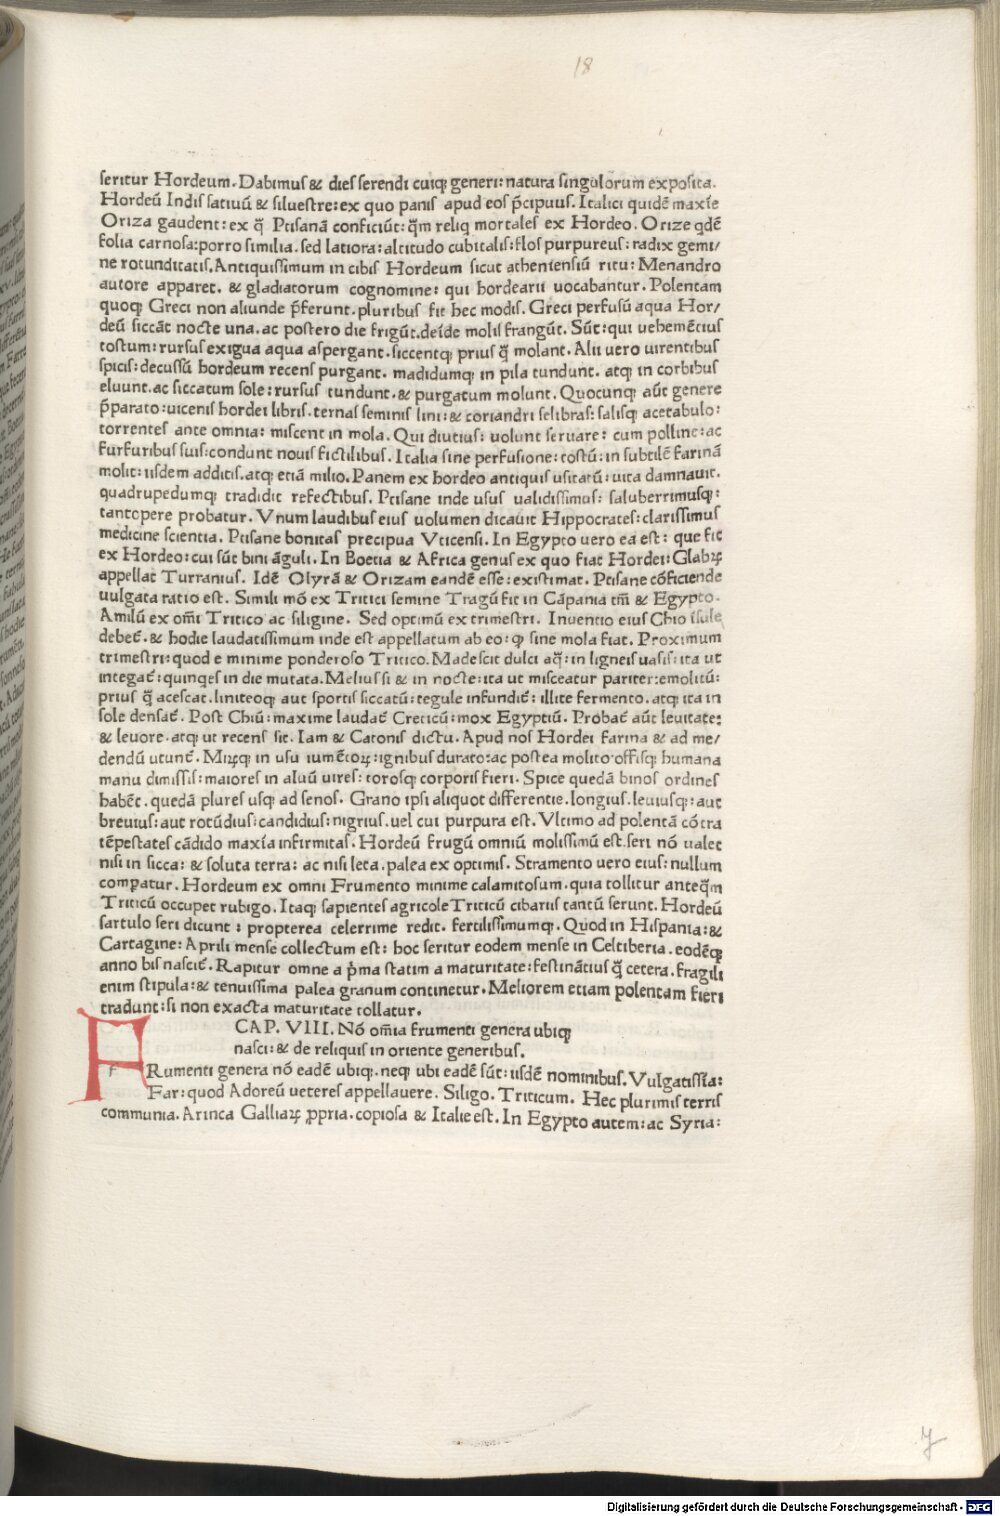 18
seritur Hordeum. Dabimus & dies serendi cuiq; generi: natura singulorum exposita.
Hordeū Indis satiuū & siluestre: ex quo panis apud eos p̄cipuus. Italici quidē maxīe
Oriza gaudent: ex q̄ Ptisanā conficiūt: q̄m reliq mortales ex Hordeo. Orize qdē
folia carnosa: porro similia. sed latiora: altitudo cubitalis: flos purpureus: radix gemi/
ne rotunditatis. Antiquissimum in cibis Hordeum sicut atheniensiū ritu: Menandro
autore apparet. & gladiatorum cognomine: qui hordearii uocabantur. Polentam
quoq; Greci non aliunde p̄ferunt. pluribus fit hec modis. Greci perfusū aqua Hor/
deū siccāt nocte una. ac postero die frigūt. deīde molis frangūt. Sūt: qui uehemētius
tostum: rursus exigua aqua aspergant. siccentq; prius q̄ molant. Alii uero uirentibus
spicis: decussū hordeum recens purgant. madidumq; in pila tundunt. atq; in corbibus
eluunt. ac siccatum sole: rursus tundunt. & purgatum molunt. Quocunq; aūt genere
p̄parato: uicenis hordei libris. ternas seminis lini: & coriandri selibras: salisq; acetabulo:
torrentes ante omnia: miscent in mola. Qui diutius: uolunt seruare: cum polline: ac
furfuribus suis: condunt nouis fictilibus. Italia sine perfusione: tostū: in subtilē farinā
molit: iisdem additis. atq; etiā milio. Panem ex hordeo antiquis usitatū: uita damnauit.
quadrupedumq; tradidit refectibus. Ptisane inde usus ualidissimus: saluberrimusq;:
tantopere probatur. Vnum laudibus eius uolumen dicauit Hippocrates: clarissimus
medicine scientia. Ptisane bonitas precipua Vticensi. In Egypto uero ea est: que fit
ex Hordeo: cui sūt bini āguli. In Boetia & Africa genus ex quo fiat Hordei: Glabꝝ
appellat Turranius. Idē Olyrā & Orizam eandē esse: existimat. Ptisane cōficiende
uulgata ratio est. Simili mō ex Tritici semine Tragū fit in Cāpania tm̄ & Egypto.
Amilū ex om̄i Tritico ac siligine. Sed optimū ex trimestri. Inuentio eius Chio īsule
debet̄. & hodie laudatissimum inde est appellatum ab eo: q; sine mola fiat. Proximum
trimestri: quod e minime ponderoso Tritico. Madescit dulci aq̄: in ligneis uasis: ita ut
integat̄: quinqes in die mutata. Melius si & in nocte: ita ut misceatur pariter: emolitū:
prius q̄ acescat. linteoq; aut sportis siccatū: tegule infundit̄: illite fermento. atq; ita in
sole densat̄. Post Chiū: maxime laudat̄ Creticū: mox Egyptiū. Probat̄ aūt leuitate:
& leuore. atq; ut recens sit. Iam & Catonis dictu. Apud nos Hordei farina & ad me/
dendū utunt̄. Mirꝝq; in usu iumētoꝝ: ignibus durato: ac postea molito offisq; humana
manu dimissis: maiores in aluū uires: torosq; corporis fieri. Spice quedā binos ordines
habēt. quedā plures usq; ad senos. Grano ipsi aliquot differentie. longius. leuiusq;: aut
breuius: aut rotūdius: candidius: nigrius. uel cui purpura est. Vltimo ad polentā cōtra
tēpestates cādido maxīa infirmitas. Hordeū frugū omniū molissimū est. seri nō ualet
nisi in sicca: & soluta terra: ac nisi leta. palea ex optimis. Stramento uero eius: nullum
comp̱atur. Hordeum ex omni Frumento minime calamitosum. quia tollitur anteq̄m
Triticū occupet rubigo. Itaq; sapientes agricole Triticū cibariis tantū serunt. Hordeū
sartulo seri dicunt: propterea celerrime redit. fertilissimumq;. Quod in Hispania: &
Cartagine: Aprili mense collectum est: hoc seritur eodem mense in Celtiberia. eodēq;
anno bis nascit̄. Rapitur omne a p̄ma statim a maturitate: festinātius q̄ cetera. fragili
enim stipula: & tenuissima palea granum continetur. Meliorem etiam polentam fieri
tradunt: si non exacta maturitate tollatur.
CAP. VIII. Nō om̄ia frumenti genera ubiq;
nasci: & de reliquis in oriente generibus.
FRumenti genera nō eadē ubiq;. neq; ubi eadē sūt: iisdē nominibus. Vulgatissīa:
Far: quod Adoreū ueteres appellauere. Siligo. Triticum. Hec plurimis terris
communia. Arinca Galliaꝝ ꝓpria. copiosa & Italie est. In Egypto autem: ac Syria:
Digitalisierung gefördert durch die Deutsche Forschungsgemeinschaft - DFG